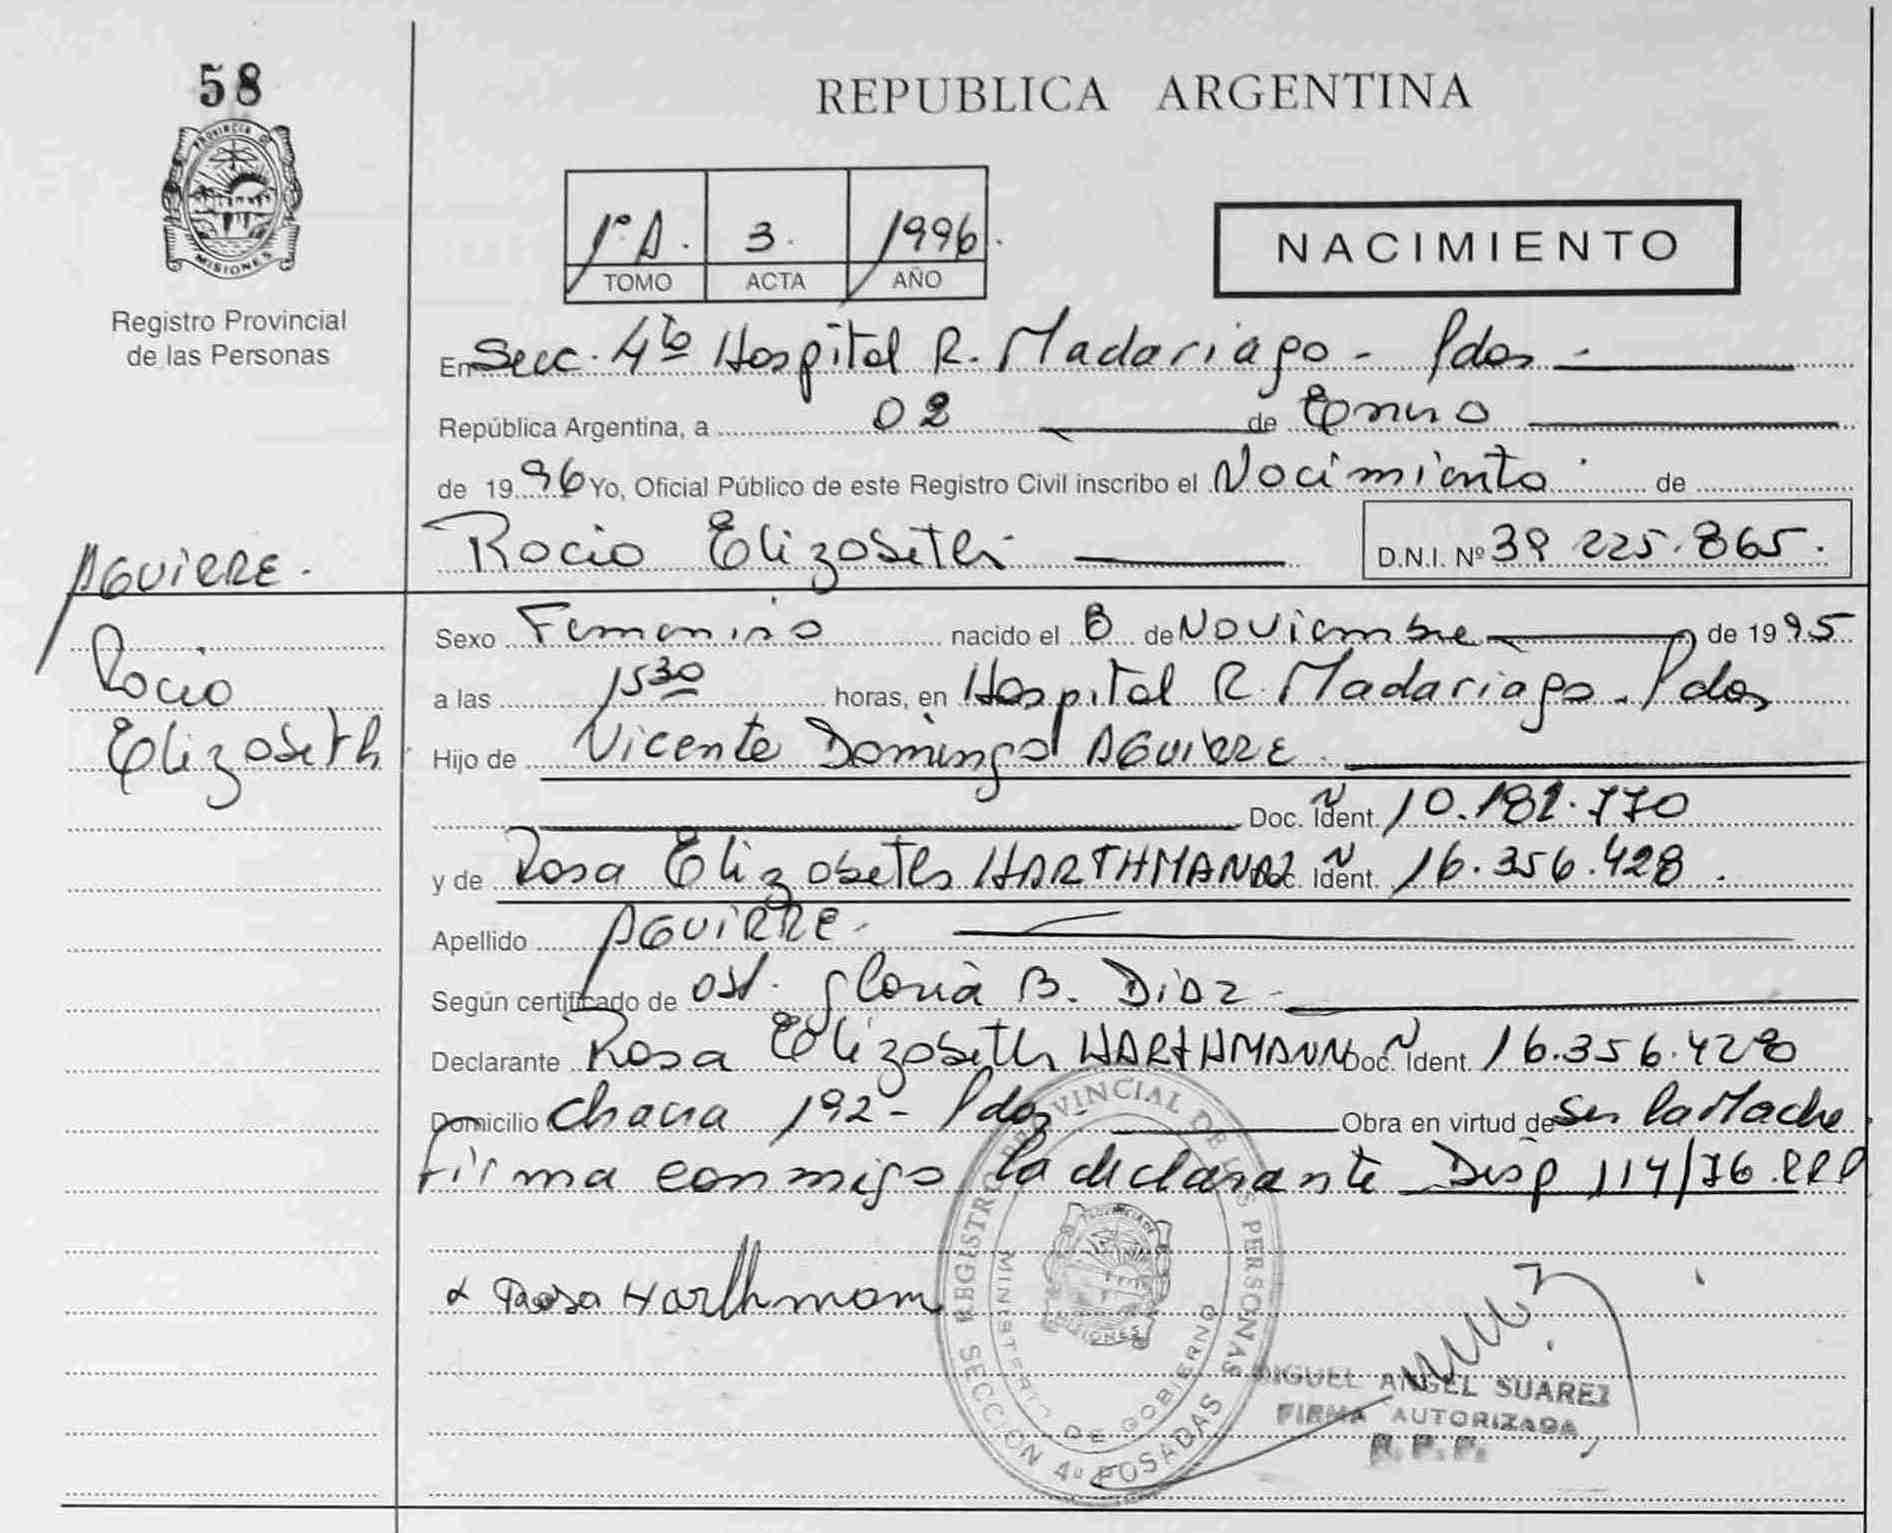 58
REPUBLICA ARGENTINA
PROVINCIA DE MISIONES
Registro Provincial
de las Personas
1º A. 3. 1996.
TOMO ACTA AÑO
NACIMIENTO
En Secc. 4ta Hospital R. Madariaga - Pdas -
República Argentina, a 02 de Enero
de 1996 Yo, Oficial Público de este Registro Civil inscribo el Nacimiento de
Rocio Elizabeth D.N.I. Nº 39 225.865.
AGUIRRE.
Rocio
Elizabeth
Sexo Femenino nacido el 8 de Noviembre de 1995
a las 1530 horas, en Hospital R. Madariaga - Pdas
Hijo de Vicente Domingo AGUIRRE
Doc. Ident. Nº 10.182.770
y de Rosa Elizabeth HARTHMANN Doc. Ident. Nº 16.356.428.
Apellido AGUIRRE.
Según certificado de Ost. Gloria B. Diaz -
Declarante Rosa Elizabeth HARTHMANN Doc. Ident. Nº 16.356.428
Domicilio Chacra 192 - Pdas Obra en virtud de Ser la Madre.
Firma conmigo la declarante Disp 114/76.RPP
x Rosa Harthmann
REGISTRO PROVINCIAL DE LAS PERSONAS
MINISTERIO DE GOBIERNO
PROVINCIA DE MISIONES
SECCION 4º POSADAS
MIGUEL ANGEL SUAREZ
FIRMA AUTORIZADA
R. P. P.